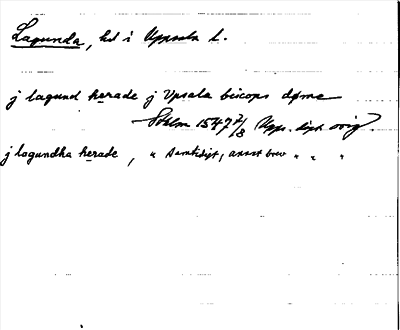 Lagunda, hd i Uppsala l.
j lagund herade j Vpsala biscops døme
Sthlm 1547 2/8 Upps. dipl. orig.
j lagundha herade, " samtidigt, annat brev " " "